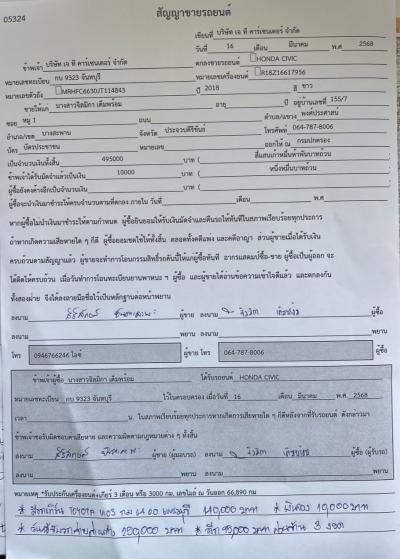 05324
สัญญาขายรถยนต์
เขียนที่ บริษัท เจ ที คาร์เซนเตอร์ จำกัด
วันที่ 16 เดือน มีนาคม พ.ศ 2568
ข้าพเจ้า บริษัท เจ ที คาร์เซนเตอร์ จำกัด ตกลงขายรถยนต์ HONDA CIVIC
หมายเลขทะเบียน กบ 9323 จันทบุรี หมายเลขเครื่องยนต์ R18Z16617956
หมายเลขตัวถัง MRHFC6630JT114843 ปี 2018 สี ขาว
ขายให้แก่ นางสาวจิตมิกา เต็มพร้อม อายุ ปี อยู่บ้านเลขที่ 155/7
ซอย หมู่ 1 ถนน ตำบล/แขวง พงศ์ประศาสน์
อำเภอ/เขต บางสะพาน จังหวัด ประจวบคีรีขันธ์ โทรศัพท์ 064-787-8006
บัตร บัตรประชาชน หมายเลข ออกให้ ณ กรมปกครอง
เป็นจำนวนเงินทั้งสิ้น 495000 บาท ( สี่แสนเก้าหมื่นห้าพันบาทถ้วน
ข้าพเจ้าได้รับมัดจำแล้วเป็นเงิน 10000 บาท ( หนึ่งหมื่นบาทถ้วน
ผู้ซื้อยังคงค้างอีกเป็นจำนวนเงิน บาท (
ผู้ซื้อจะนำเงินมาชำระให้ครบจำนวนตามที่ตกลง ภายใน วันที่ เดือน พ.ศ
หากผู้ซื้อไม่นำเงินมาชำระให้ตามกำหนด ผู้ซื้อยินยอมให้ริบเงินมัดจำและคืนรถให้ทันทีในสภาพเรียบร้อยทุกประการ
ถ้าหากเกิดความเสียหายใด ๆ ก็ดี ผู้ซื้อยอมชดใช้ให้ทั้งสิ้น ตลอดทั้งคดีแพ่ง และคดีอาญา ส่วนผู้ขายเมื่อได้รับเงิน
ครบถ้วนตามสัญญาแล้ว ผู้ขายจะทำการโอนกรรมสิทธิ์รถคันนี้ให้แก่ผู้ซื้อทันที อากรแสตมป์ซื้อ-ขาย ผู้ซื้อเป็นผู้ออก จะ
ได้คิดให้ครบถ้วน เมื่อวันทำการโอนทะเบียนยานพาหนะ ฯ ผู้ซื้อ และผู้ขายได้อ่านข้อความเข้าใจดีแล้ว และตกลงกัน
ทั้งสองฝ่าย จึงได้ลงลายมือชื่อไว้เป็นหลักฐานต่อหน้าพยาน
ลงนาม ผู้ขาย ลงนาม ผู้ซื้อ
ลงนาม พยาน ลงนาม พยาน
โทร 0946766246 ไอซ์ ผู้ขาย โทร 064-787-8006 ผู้ซื้อ
ข้าพเจ้าผู้ซื้อ นางสาวจิตมิกา เต็มพร้อม ได้รับรถยนต์ HONDA CIVIC
หมายเลขทะเบียน กบ 9323 จันทบุรี ไว้ในครอบครอง เมื่อวันที่ 16 เดือน มีนาคม พ.ศ. 2568
เวลา น. ในสภาพเรียบร้อยทุกประการหากเกิดการเสียหายใด ๆ ก็ดีหลังจากที่รับรถยนต์ ดังกล่าวมา
ข้าพเจ้าขอรับผิดชอบค่าเสียหาย และความผิดตามกฎหมายต่าง ๆ ทั้งสิ้น
ลงนาม ผู้ขาย (ผู้มอบรถ) ลงนาม ผู้ซื้อ (ผู้รับรถ)
ลงนาม พยาน ลงนาม พยาน
หมายเหตุ *รับประกันเครื่องยนต์เกียร์ 3 เดือน หรือ 3000 กม. เลขไมล์ ณ วันออก 66,890 กม